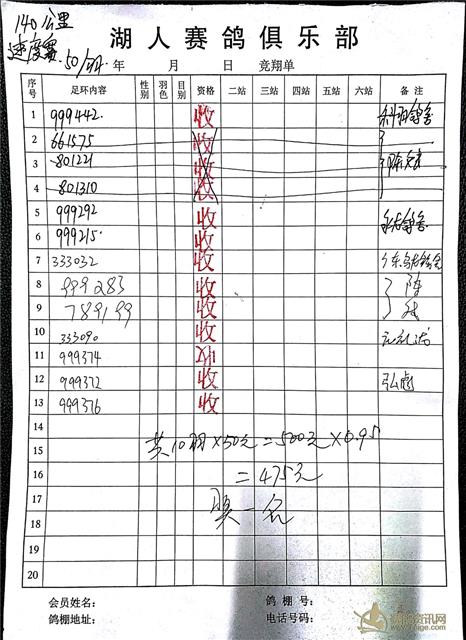 140公里
速度赛 50/羽
湖人赛鸽俱乐部
年 月 日 竞翔单
序号 足环内容 性别 羽色 目别 资格 二站 三站 四站 五站 六站 备注
1 999442 收
2 661575 收
3 801221 收
4 801310 收
5 999292 收
6 999215 收
7 333032 收
8 999283 收 陈
9 789199 收
10 333090 收
11 999374 收
12 999372 收
13 999376 收
14
15 共10羽×50元=500元×0.95
16 =475元
17 奖一名
18
19
20
会员姓名: 鸽棚号:
鸽棚地址: 电话号码: